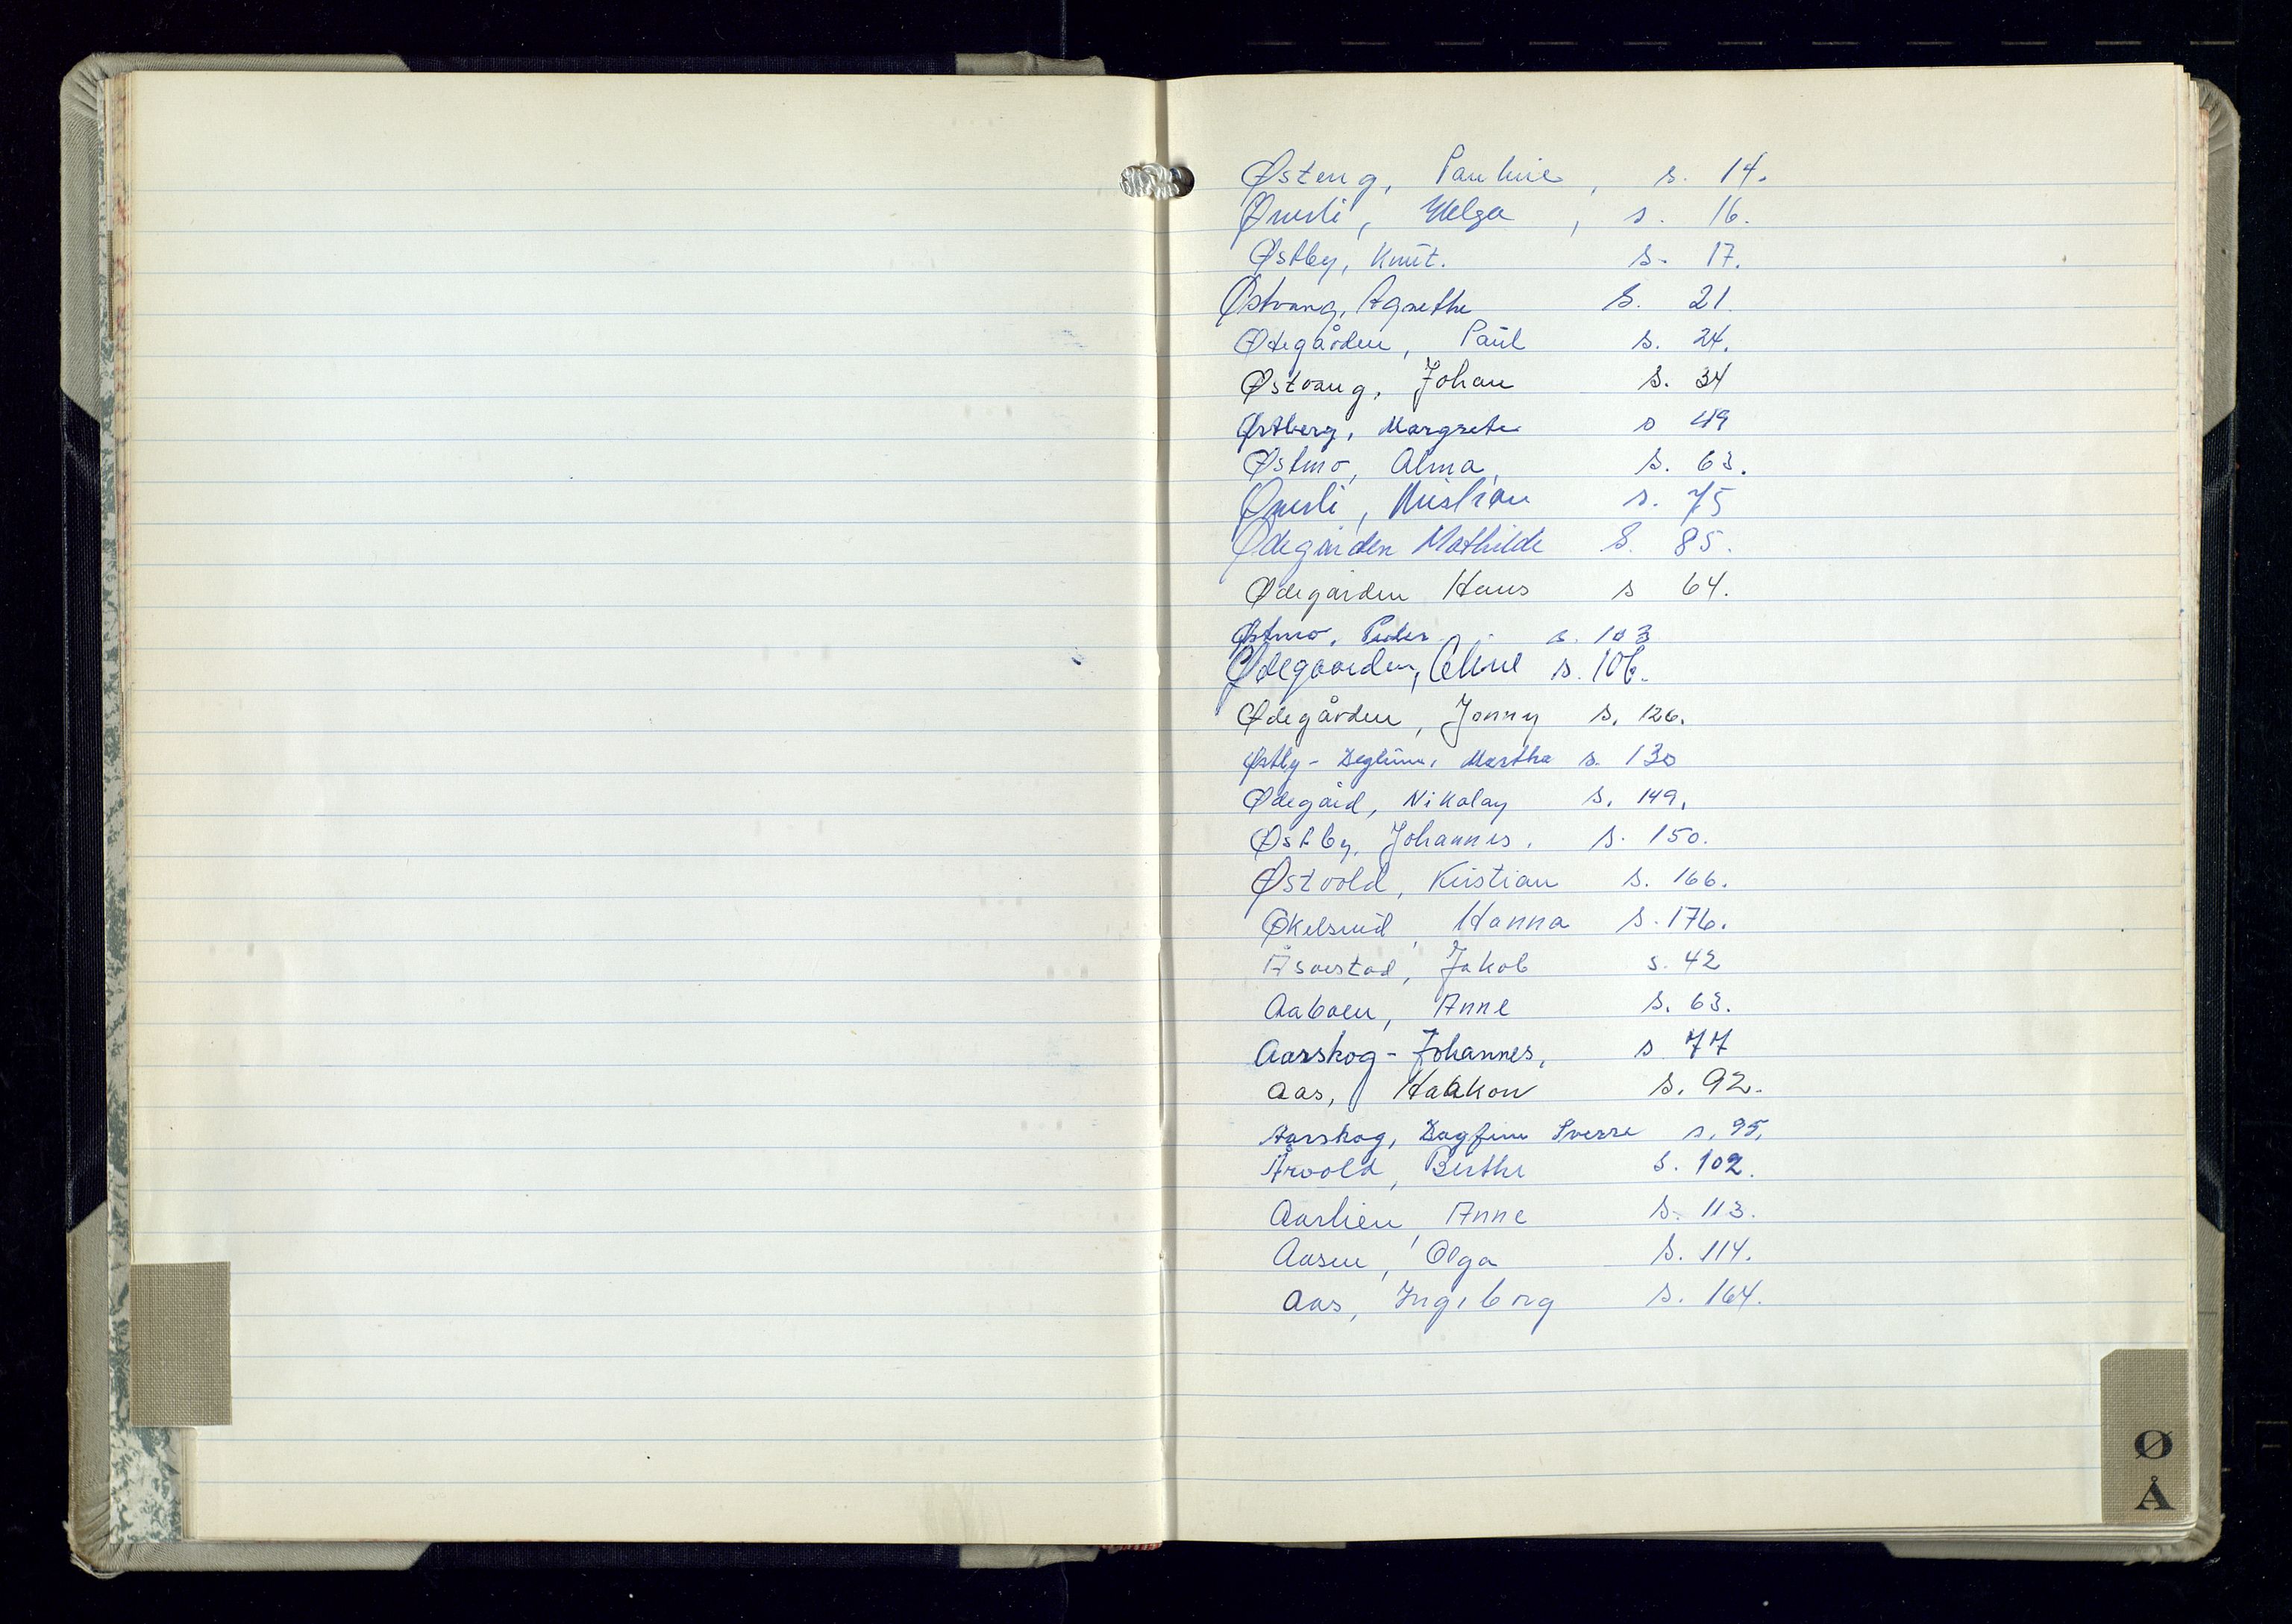 Østeng, Pauline, s. 14.
Øverli, Helga, s. 16.
Østby, Knut. s. 17.
Østvang, Agnethe s. 21.
Ødegården, Paul s. 24.
Østvang, Johan s. 34
Østberg, Margrete s 49
Østmo, Alma, s. 63.
Øverli, Kristian s. 75
Ødegården Mathilde s. 85.
Ødegården Hans s 64.
Østmo, Peder s. 103
Ødegaarden, Celine s. 106.
Ødegården, Jonny s. 126.
Østby - Deglum, Martha s. 130
Ødegård, Nikolay s. 149.
Østby, Johannes, s. 150.
Østvold, Kristian s. 166.
Økelsrud, Hanna s. 176.
Jakob s. 42
Aaboen, Anne s. 63.
Aarskog - Johannes, s 77
Aas, Haakon s. 92.
Aarskog, Dagfinn Sverre s. 95.
Årvold, Berthe s. 102.
Aarlien, Anne s. 113.
Aasen, Olga s. 114.
Aas, Ingeborg s. 164.
Ø
Å